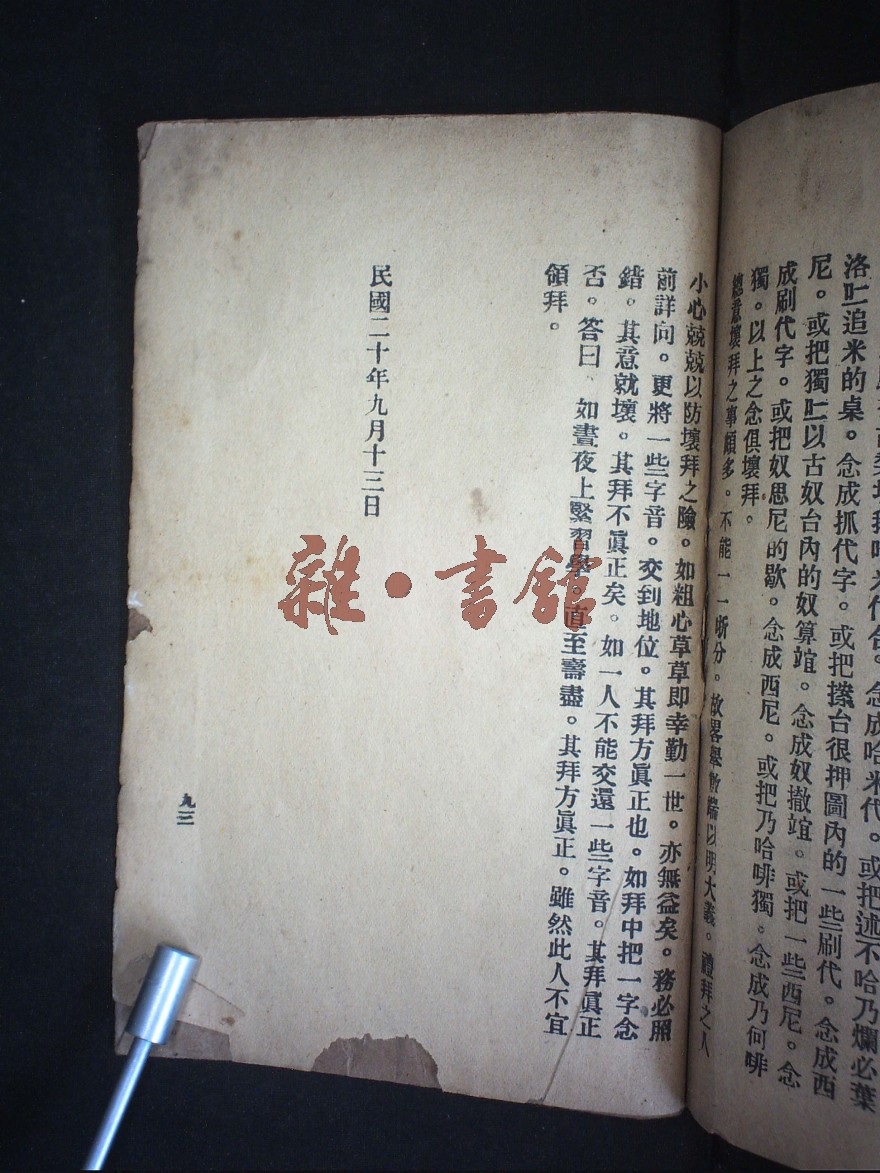 洛吐追米的桌。念成抓代字。或把擦台很押圖內的一些刷代。念成西
尼。或把獨吐以古奴台內的奴算誼。念成奴撒誼。或把一些西尼。念
成刷代字。或把奴思尼的歇。念成西尼。或把乃哈啡獨。念成乃何啡
獨。以上之念俱壞拜。
總意壞拜之事頗多。不能一一晰分。故畧舉數端以明大義。禮拜之人
小心兢兢以防壞拜之險。如粗心草草即幸勤一世。亦無益矣。務必照
前詳向。更將一些字音。交到地位。其拜方眞正也。如拜中把一字念
錯。其意就壞。其拜不眞正矣。如一人不能交還一些字音。其拜眞正
否。答曰、如晝夜上緊習學。直至壽盡。其拜方眞正。雖然此人不宜
領拜。
民國二十年九月十三日
九三
雜·書館